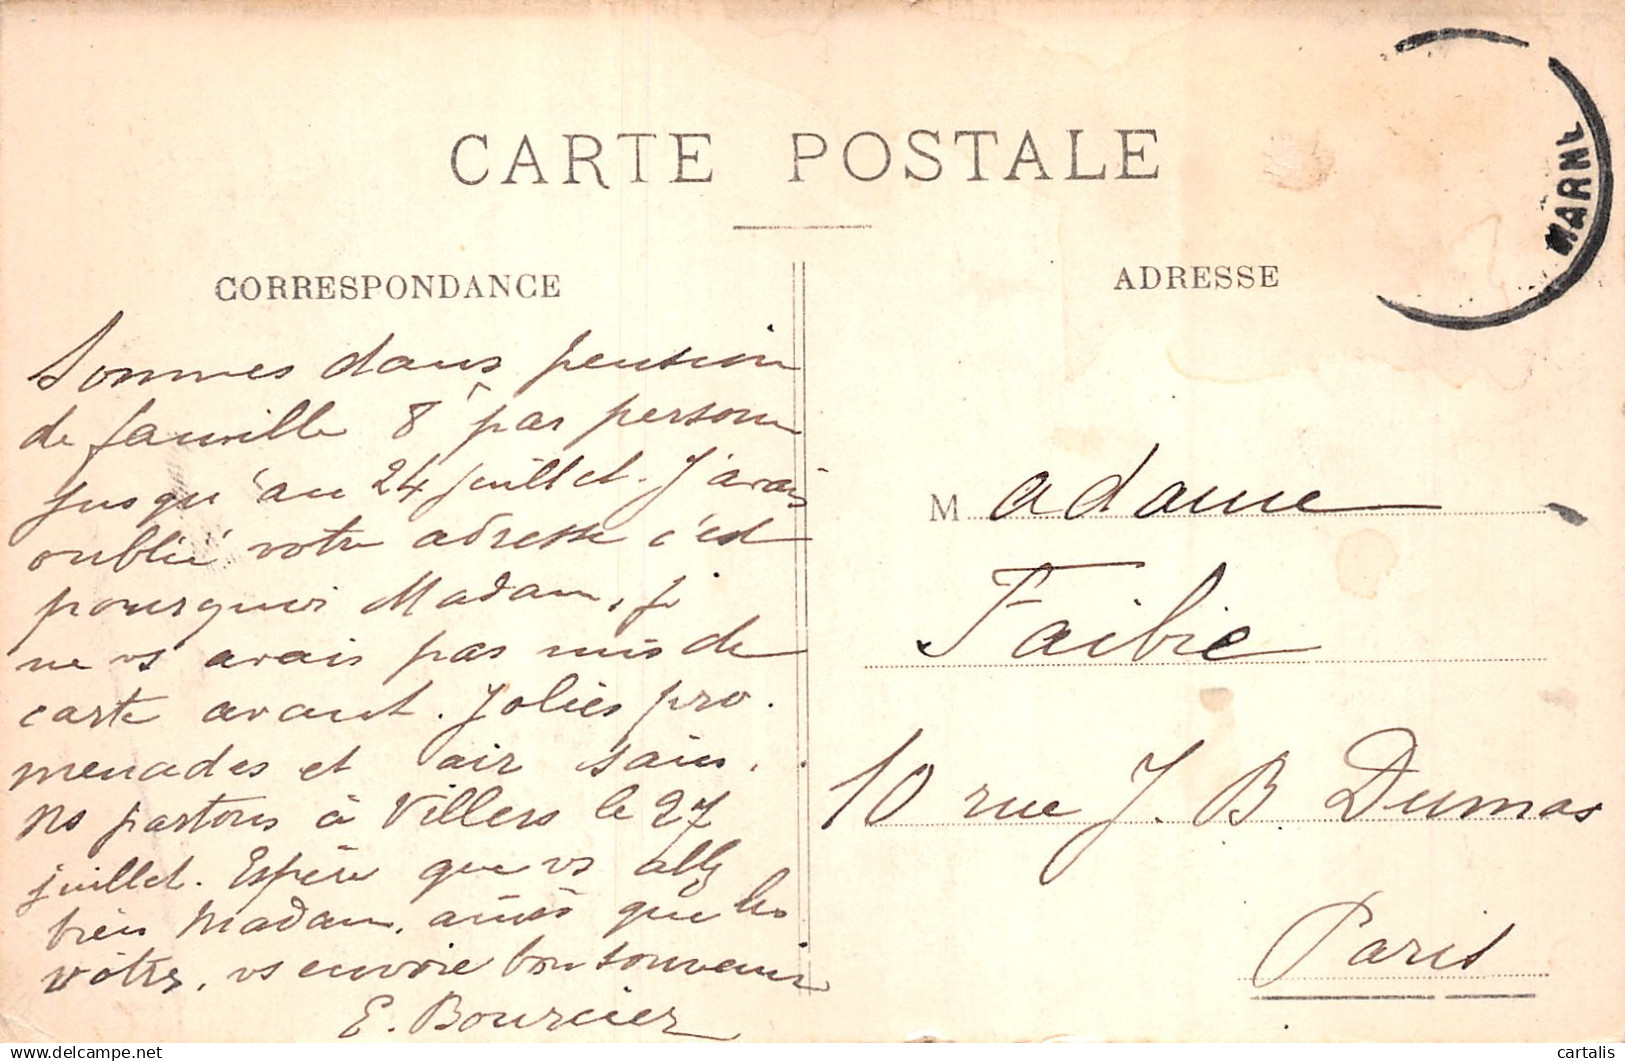 CARTE POSTALE
MARNE
CORRESPONDANCE
Sommes dans pension
de famille 8f par personne
jusqu'au 24 juillet. J'avais
oublié votre adresse c'est
pourquoi Madame, je
ne vs avais pas mis de
carte avant. Jolies pro.
menades et air sain.
Ns partons à Villers le 27
juillet. Espère que vs allez
bien Madame, ainsi que les
vôtres, vs envoie bon souvenir
E. Bourcier
ADRESSE
Madame
Faibie
10 rue J. B. Dumas
Paris
www.delcampe.net
cartalis